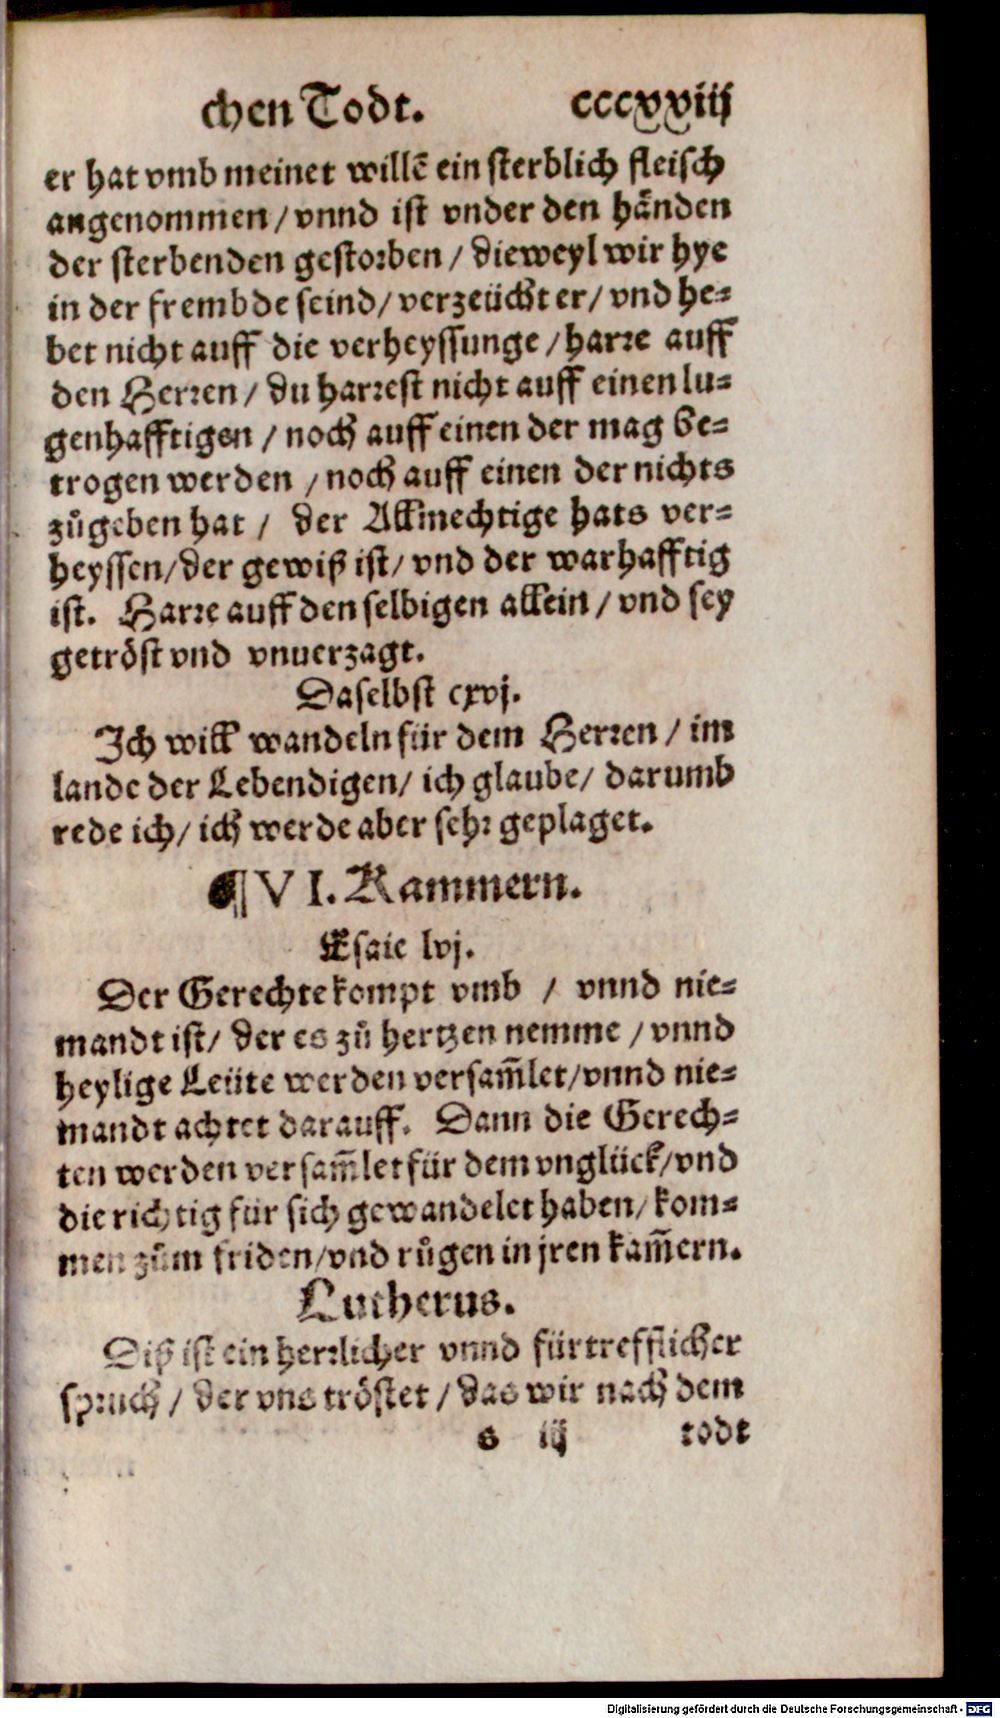 chen Todt. cccxxviij
er hat vmb meinet willē ein sterblich fleisch
angenommen / vnnd ist vnder den hånden
der sterbenden gestorben / dieweyl wir hye
in der frembde seind / verzeücht er / vnd he⸗
bet nicht auff die verheyssunge / harre auff
den Herren / du harrest nicht auff einen lu⸗
genhafftigen / noch auff einen der mag be⸗
trogen werden / noch auff einen der nichts
zůgeben hat / der Allmechtige hats ver⸗
heyssen / der gewiß ist / vnd der warhafftig
ist. Harre auff den selbigen allein / vnd sey
getröst vnd vnuerzagt.
Daselbst cxvj.
Ich will wandeln für dem Herren / im
lande der Lebendigen / ich glaube / darumb
rede ich / ich werde aber sehr geplaget.
¶ VI. Kammern.
Esaie lvj.
Der Gerechte kompt vmb / vnnd nie⸗
mandt ist / der es zů hertzen nemme / vnnd
heylige Leüte werden versam̃let / vnnd nie⸗
mandt achtet darauff. Dann die Gerech⸗
ten werden versam̃let für dem vnglück / vnd
die richtig für sich gewandelet haben / kom⸗
men zům friden / vnd růgen in jren kam̃ern.
Lutherus.
Diß ist ein herrlicher vnnd fürtrefflicher
spruch / der vns tröstet / das wir nach dem
s iij todt
Digitalisierung gefördert durch die Deutsche Forschungsgemeinschaft - DFG